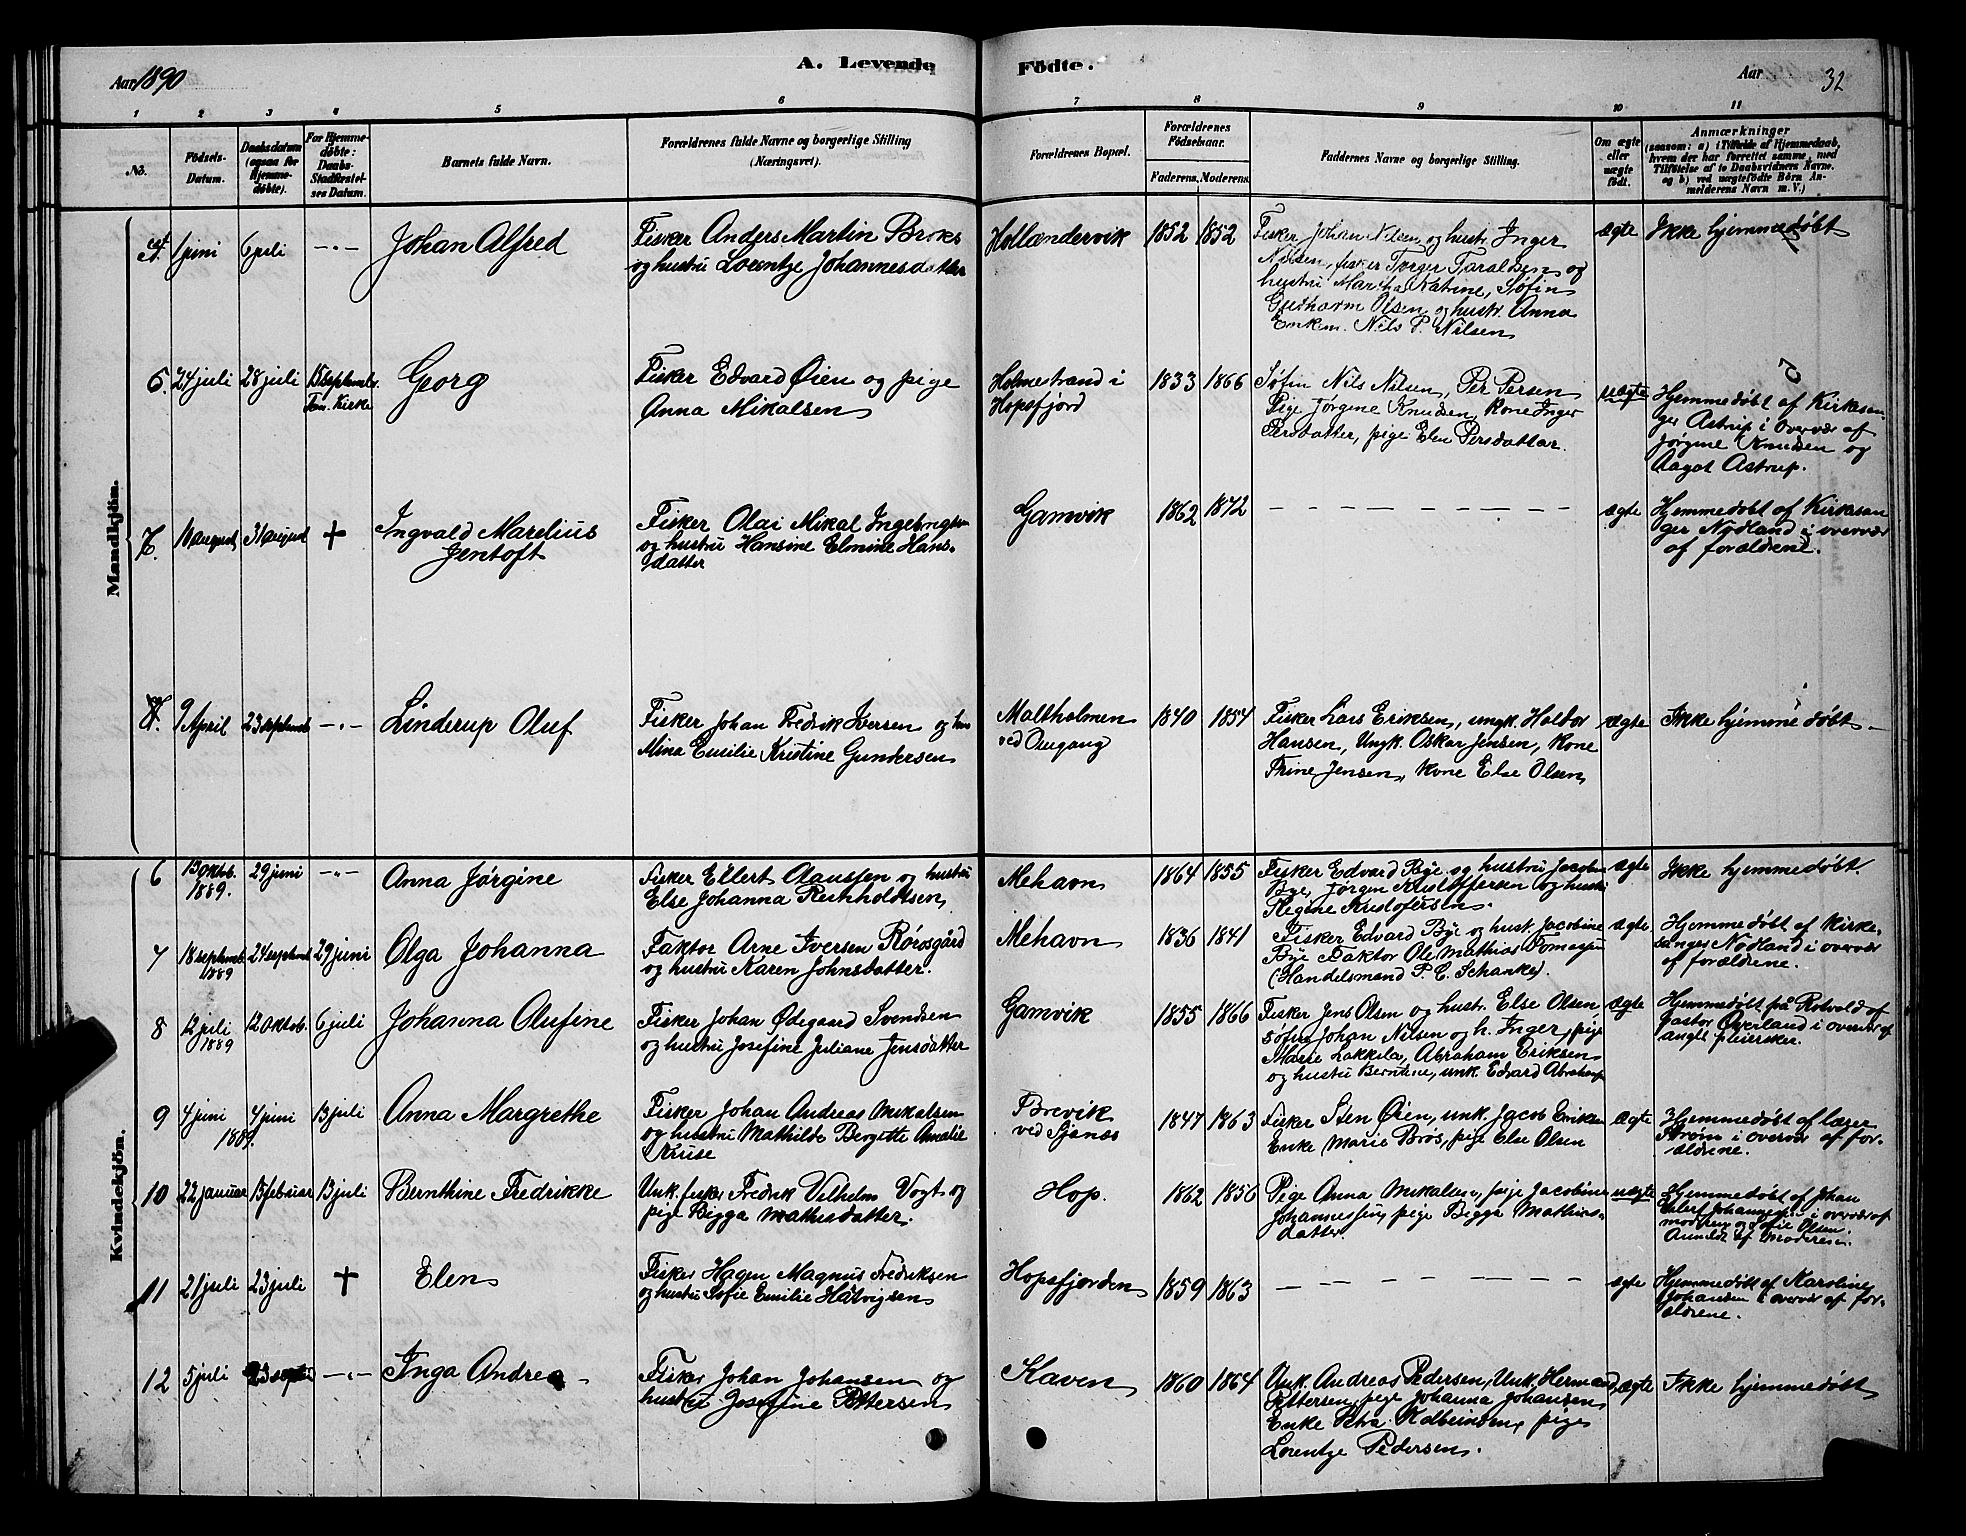 Aar 1890
A. Levende Födte.
Aar
32
1 2 3 4 5 6 7 8 9 10 11
No.
Födsels-Datum.
Daabsdatum (ogsaa for Hjemme-døbte).
For Hjemme-døbte: Daabs-Stadfæstel-ses Datum.
Barnets fulde Navn.
Forældrenes fulde Navne og borgerlige Stilling (Næringsvei).
Forældrenes Bopæl.
Forældrenes Födselsaar.
Faderens. Moderens.
Faddernes Navne og borgerlige Stilling.
Om ægte eller uægte födt.
Anmærkninger
(saasom: a) i Tilfælde af Hjemmedaab, hvem der har forrettet samme, med Tilföielse af to Daabsvidners Navne, og b) ved uægtefödte Börn Anmelderens Navn m. V.)
Mandkjön.
1 juni 6 juli -"- Johan Alfred
Fisker Anders Martin Broks
og hustru Lorentze Johannesdatter
Hollændervik 1852 1852
Fisker Johan Nilsen og hustr. Inger
Nilsen, fisker Torger Taraldsen og
hustru Martha Katrine, Søfin
Gudharm Olsen og hustr. Anna
Enkem. Nils P. Nilsen
ægte Ikke hjemmedøbt
6. 24 juli 28 juli 15 septembr. Tan. Kirke Georg
Fisker Edvard Øien og pige
Anna Mikalsen
Holmestrand i
Hopsfjord
1833 1866
Søfin Nils Nilsen, Per Persen
Pige Jørgine Knudsen, Kone Inger
Persdatter, pige Elen Persdatter.
uægte
Hjemmedøbt af Kirkesan-
ger Astrup i overvær af
Jørgine Knudsen og
Aagot Astrup.
7. 31 august + Ingvald Marelius
Jentoft
Fisker Olai Mikal Ingebrigtsen
og hustru Hansine Elmine Hans-
datter
Gamvik 1862 1872 - - - - - - - - - -
ægte
Hjemmedøbt af Kirkesan
ger Nødland i overvær
af forældrene.
8. 9 April 23 septemb -"- Linderup Oluf
Fisker Johan Fredrik Iversen og hus
Mina Emilie Kristine Gundersen
Maltholmen
ved Omgang
1840 1854
Fisker Lars Eriksen, ungk. Haldor
Hansen, Ungk. Oskar Jensen, Kone
Trine Jensen, Kone Else Olsen
ægte Ikke hjemme døbt
Kvindekjön.
6 13 oktb. 1889. 29 juni -"- Anna Jørgine
Fisker Ellert Olaussen og hustru
Else Johanna Reinholdtsen
Mehavn 1864 1855
Fisker Edvard Bye og hustru Jacobin
Bye, Jørgen Kristoffersen og hustr
Regine Kristofersen.
ægte Ikke hjemmedøbt
7 18 septemb. 1889 24 septemb 29 juni Olga Johanna
Faktor Arne Iversen Rørosgård
og hustru Karen Johnsdatter.
Mehavn 1836 1841
Fisker Edvard Bye og hust. Jacobine
Bye Faktor Ole Mathias
(Handelsmand P. C. Schanke).
ægte
Hjemmedøbt af Kirke-
sanger Nødland i overvær
af forældrene.
8 12 juli 1889 12 oktob. 6 juli Johanna Olufine
Fisker Johan Ødegaard Svendsen
og hustru Josefine Juliane Jensdatter
Gamvik 1855 1866
Fisker Jens Olsen og hustr. Else Olsen
Søfin Johan Nilsen og h. Inger, pige
Marie Lakkila, Abraham Eriksen
og hustru Berntine, unk. Edvard Abraham
ægte
Hjemmedøbt på Rotvold af
pastor Øverland i overvær af
pleiersker.
9 4 juni 1889. 4 juni 13 juli Anna Margrethe
Fisker Johan Andreas Mikalsen
og hustru Mathilde Bergette Amalie
Kruse
Brevik
ved Sjånæs
1847 1863
Fisker Sten Øien, unk. Jacob Eriksen
Enke Marie Brøs, pige Else Olsen
ægte
Hjemmedøbt af lærer
Strøm i overvær af for-
ældrene.
10 22 januar 15 februar 13 juli Bernthine Fredrikke
Unk. fisker Fredrik Vilhelm Vogt og
pige Bigga Mathisdatter.
Hop. 1862 1856
Pige Anna Mikalsen, pige Jacobine
Johannessen, pige Bigga Mathis-
datter
uægte
Hjemmedøbt af Johan
Ellert Johannesen i overvær af
modren og Sofie Olsen
Anmeldt af Moderen.
11 21 juli 23 juli + Elen
Fisker Hagen Magnus Fredriksen
og hustru Sofie Emilie Hatvigsen
Hopsfjorden 1859 1863 - - - - - - - -
ægte
Hjemmedøbt af Karoline
Johansen i overvær af for-
ældrene.
12 5 juli 23 septb -"- Inga Andrea
Fisker Johan Johansen og
hustru Josefine Pettersen
Kaven 1860 1864
Unk. Andreas Pedersen, Unk. Herman
Pettersen, pige Johanna Johansen
Enke Kolbeinsen, pige
Lorentze Pedersen.
ægte Ikke hjemmedøbt